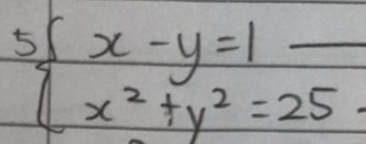 5 { x - y = 1 —
x² + y² = 25 -